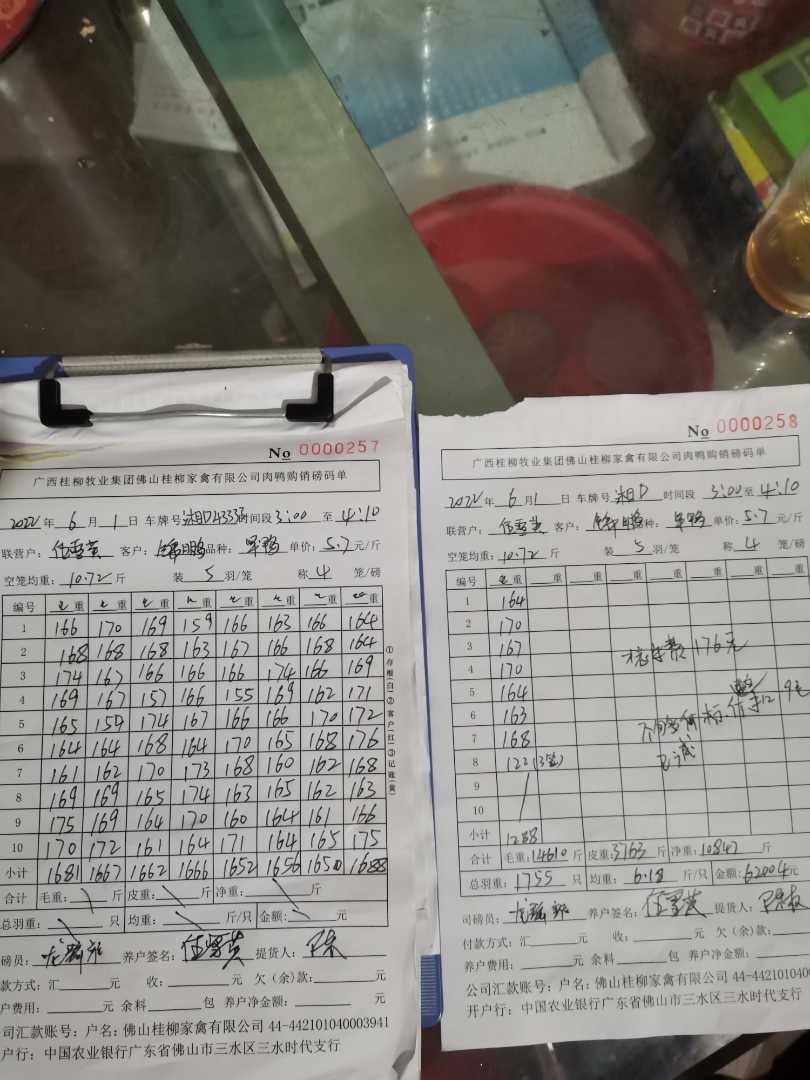 No 0000257
广西桂柳牧业集团佛山桂柳家禽有限公司肉鸭购销磅码单
2022年 6月 1日 车牌号 湘D 时间段 3:00 至 4:10
联营户: 客户: 品种: 单价: 5.7元/斤
空笼均重: 10.72 斤 装 5 羽/笼 称 4 笼/磅
编号 重 重 重 重 重 重 重 重
1 166 170 169 159 166 163 166 164
2 168 168 168 163 167 166 168 164
3 174 167 166 166 166 174 166 169
4 169 167 157 166 155 169 162 171
5 165 154 174 167 166 166 170 172
6 164 164 168 164 170 165 168 176
7 161 162 170 173 168 160 162 168
8 169 169 165 174 163 165 162 163
9 175 169 164 170 160 164 161 166
10 170 172 161 164 171 164 165 175
小计 1681 1667 1662 1666 1652 1656 1650 1688
合计 毛重: 斤 皮重: 斤 净重: 斤
总羽重: 只 均重: 斤/只 金额: 元
磅员: 养户签名: 提货人:
款方式: 汇 元 收: 元 欠(余)款: 元
户费用: 元 余料 包 养户净金额: 元
司汇款账号: 户名: 佛山桂柳家禽有限公司 44-442101040003941
户行: 中国农业银行广东省佛山市三水区三水时代支行
①存根(白)②客户(红)③记账(黄)
No 0000258
广西桂柳牧业集团佛山桂柳家禽有限公司肉鸭购销磅码单
2022年 6月 1日 车牌号 湘D 时间段 3:00 至 4:10
联营户: 客户: 品种: 单价: 5.7元/斤
空笼均重: 10.72 斤 装 5 羽/笼 称 4 笼/磅
编号 重 重 重 重 重 重 重 重
1 164
2 170
3 167
176元
4 170
5 164
6 163
7 168
8 122 (3笼)
9
10
小计 1288
合计 毛重: 14610 斤 皮重: 3763 斤 净重: 10847 斤
总羽重: 1755 只 均重: 6.18 斤/只 金额: 62004元
司磅员: 养户签名: 提货人:
付款方式: 汇 元 收: 元 欠(余)款:
养户费用: 元 余料 包 养户净金额:
公司汇款账号: 户名: 佛山桂柳家禽有限公司 44-4421010400
开户行: 中国农业银行广东省佛山市三水区三水时代支行